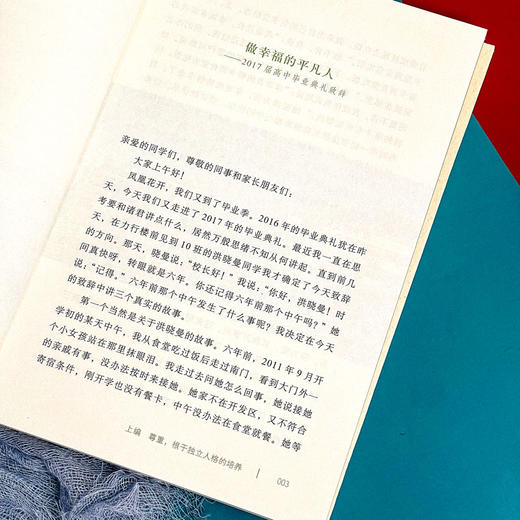 做幸福的平凡人
——2017届高中毕业典礼致辞
亲爱的同学们，尊敬的同事和家长朋友们：
大家上午好！
凤凰花开，我们又到了毕业季。2016年的毕业典礼犹在昨
天，今天我们又走进了2017年的毕业典礼。最近我一直在思
考要和诸君讲点什么，居然万般思绪不知从何讲起。直到前几
天，在力行楼前见到10班的洪晓曼同学我才确定了今天致辞
的方向。那天，晓曼说：“校长好！”我说：“你好，洪晓曼！时
间真快呀，转眼就是六年。你还记得六年前那个中午吗？”她
说：“记得。”六年前那个中午发生了什么事呢？我决定在今天
的致辞中讲三个真实的故事。
第一个当然是关于洪晓曼的故事。六年前，2011年9月开
学初的某天中午，我从食堂吃过饭后走过南门，看到大门外一
个小女孩站在那里抹眼泪。我走过去问她怎么回事，她说接她
的亲戚有事，没办法按时来接她。她家不在开发区，又不符合
寄宿条件，刚开学也没有餐卡，中午没办法在食堂就餐。她等
上编 尊重，根干独立人格的培养 | 003